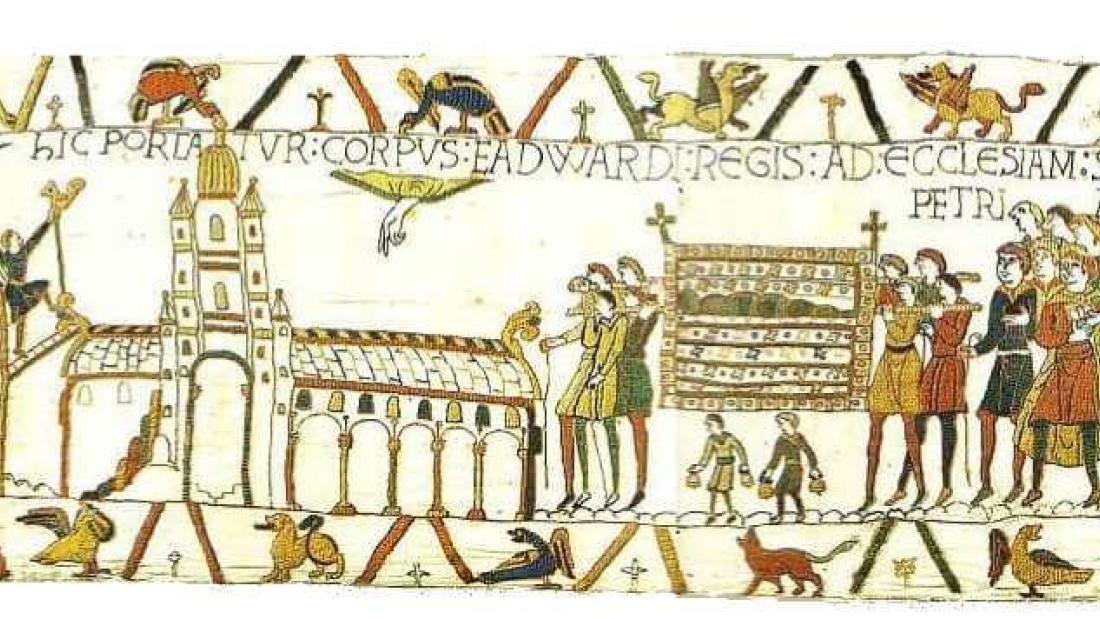 hIC PORTATVR: CORPVS: EADWARDI: REGIS: AD: ECCLESIAM: S
PETRI